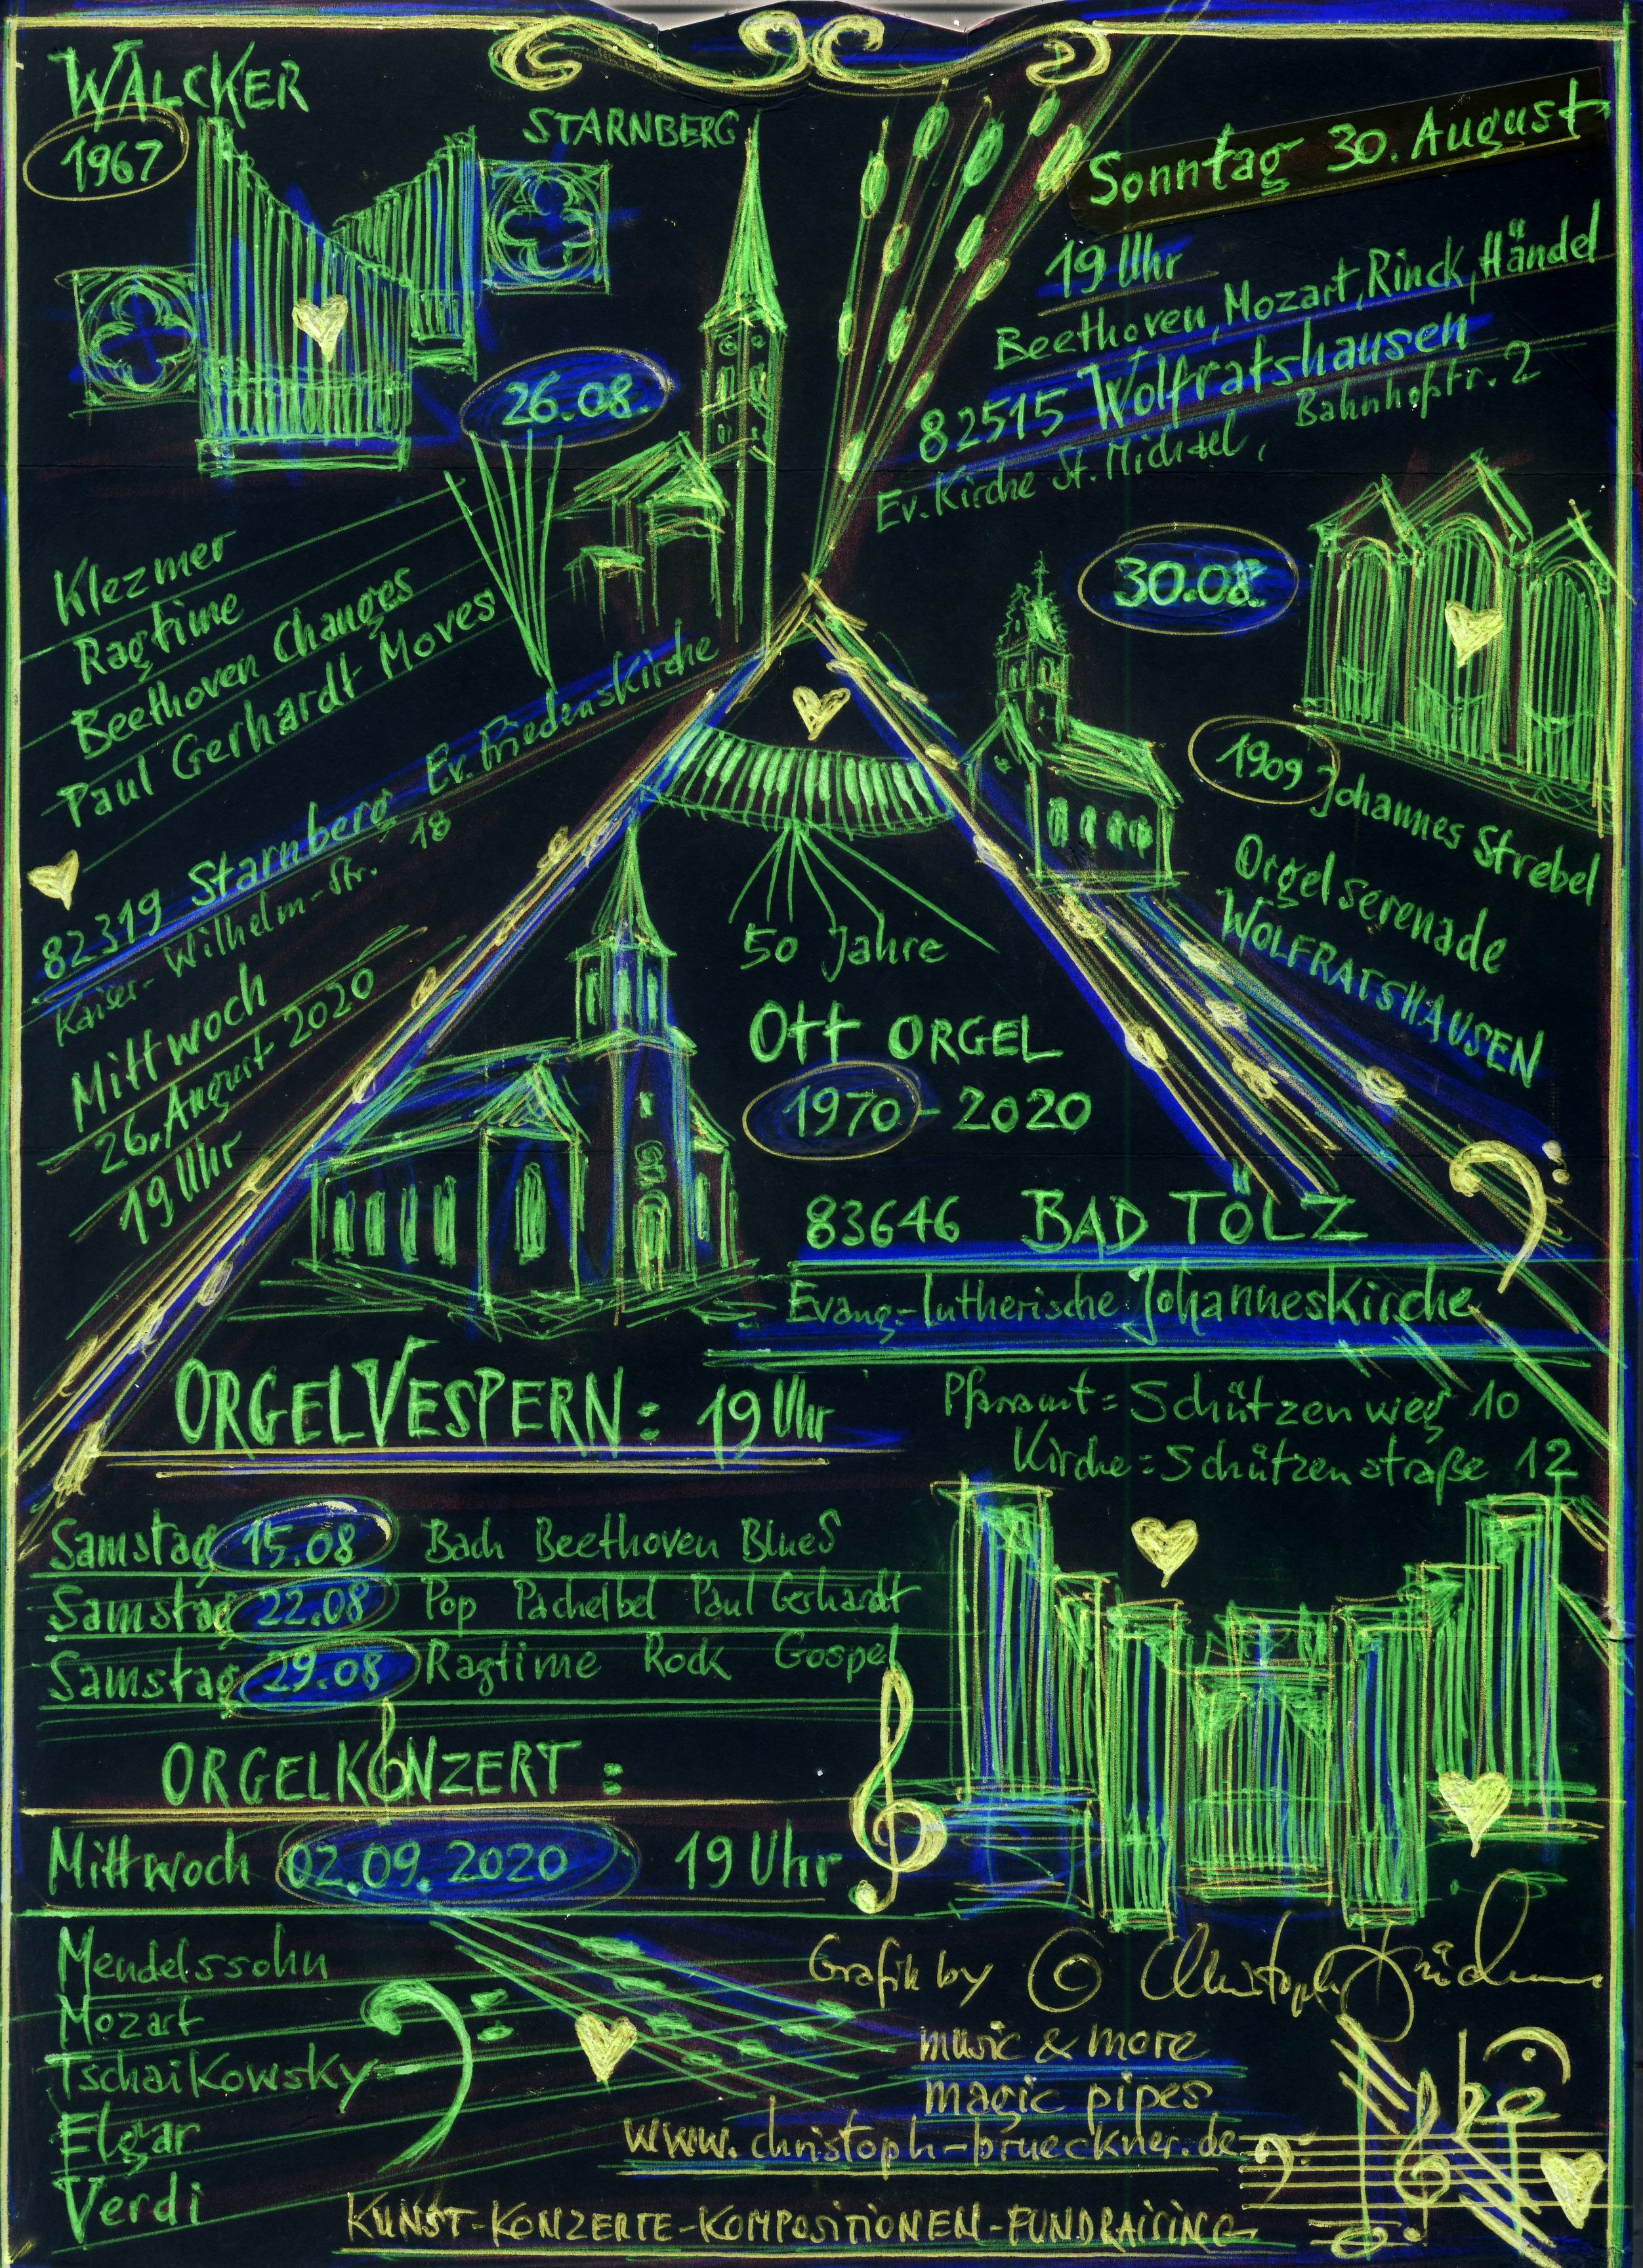 WALCKER
1967
STARNBERG
26.08.
Klezmer
Ragtime
Beethoven Changes
Paul Gerhardt Moves
82319 Starnberg Ev. Friedenskirche
Kaiser-Wilhelm-Str. 18
Mittwoch
26. August 2020
19 Uhr
Sonntag 30. August
19 Uhr
Beethoven, Mozart, Rinck, Händel
82515 Wolfratshausen
Ev. Kirche St. Michael, Bahnhofstr. 2
30.08.
1909 Johannes Strebel
Orgelserenade
WOLFRATSHAUSEN
50 Jahre
Ott ORGEL
1970 - 2020
83646 BAD TÖLZ
Evang.-Lutherische Johanneskirche
Pfarramt = Schützenweg 10
Kirche = Schützenstraße 12
ORGELVESPERN: 19 Uhr
Samstag 15.08 Bach Beethoven Blues
Samstag 22.08 Pop Pachelbel Paul Gerhardt
Samstag 29.08 Ragtime Rock Gospel
ORGELKONZERT:
Mittwoch 02.09.2020 19 Uhr
Mendelssohn
Mozart
Tschaikowsky
Elgar
Verdi
Grafik by © Christoph Brückner
music & more
magic pipes
www.christoph-brueckner.de
KUNST-KONZERTE-KOMPOSITIONEN-FUNDRAISING